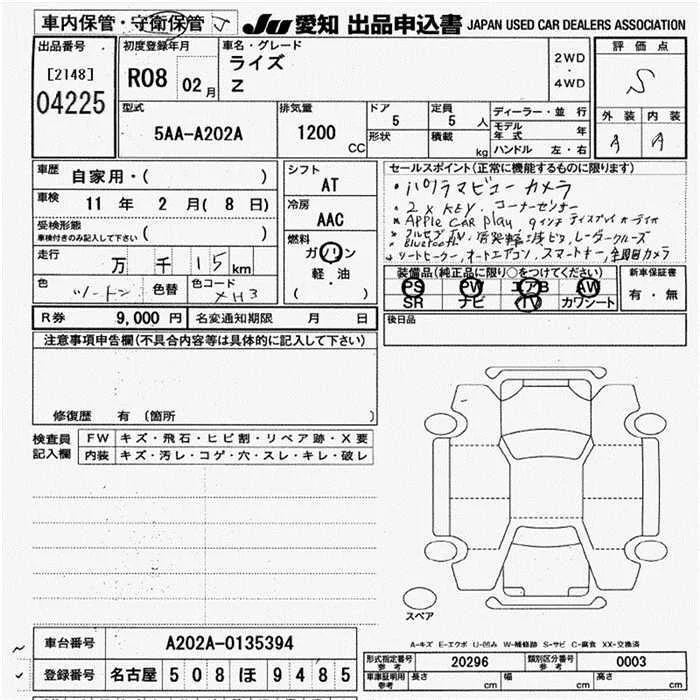 車内保管・守衛保管 JU 愛知 出品申込書 JAPAN USED CAR DEALERS ASSOCIATION
出品番号
[2148]
04225
初度登録年月
R08 02 月
車名・グレード
ライズ
Z
2WD
・
4WD
評価点
S
外装 内装
A A
型式
5AA-A202A
排気量
1200 CC
ドア
5
定員
5 人
形状
積載
kg
ディーラー・並行
モデル年式 年
ハンドル 左・右
車歴
自家用・( )
車検
11 年 2 月( 8 日)
受検形態
車検付きのみ記入して下さい ( )
走行
万 千 15 km
色
ツートン
色替
色コード
XH3
シフト
AT
冷房
AAC
燃料
ガソリン
軽・油
( )
セールスポイント(正常に機能するものに限ります)
・パノラマビューカメラ
・2×KEY、コーナーセンサー
・Apple CAR Play, 9インチディスプレイオーディオ
Bluetooth
・シートヒーター、オートエアコン、スマートキー、全周囲カメラ
装備品(純正品に限り○をつけてください)
PS PW エアB AW
SR ナビ TV カワシート
新車保証書
有・無
R券 9,000 円 名変通知期限 月 日
後日品
注意事項申告欄(不具合内容等は具体的に記入して下さい)
修復歴 有 〔箇所 〕
検査員
記入欄
FW キズ・飛石・ヒビ割・リペア跡・X要
内装 キズ・汚レ・コゲ・穴・スレ・キレ・破レ
スペア
A-キズ E-エクボ U-凹み W-補修跡 S-サビ C-腐食 XX-交換済
車台番号 A202A-0135394
登録番号 名古屋 508 ほ 9485
型式指定番号
参考
20296
類別区分番号
参考
0003
車庫証明用
参考
長さ cm 幅 cm 高さ cm